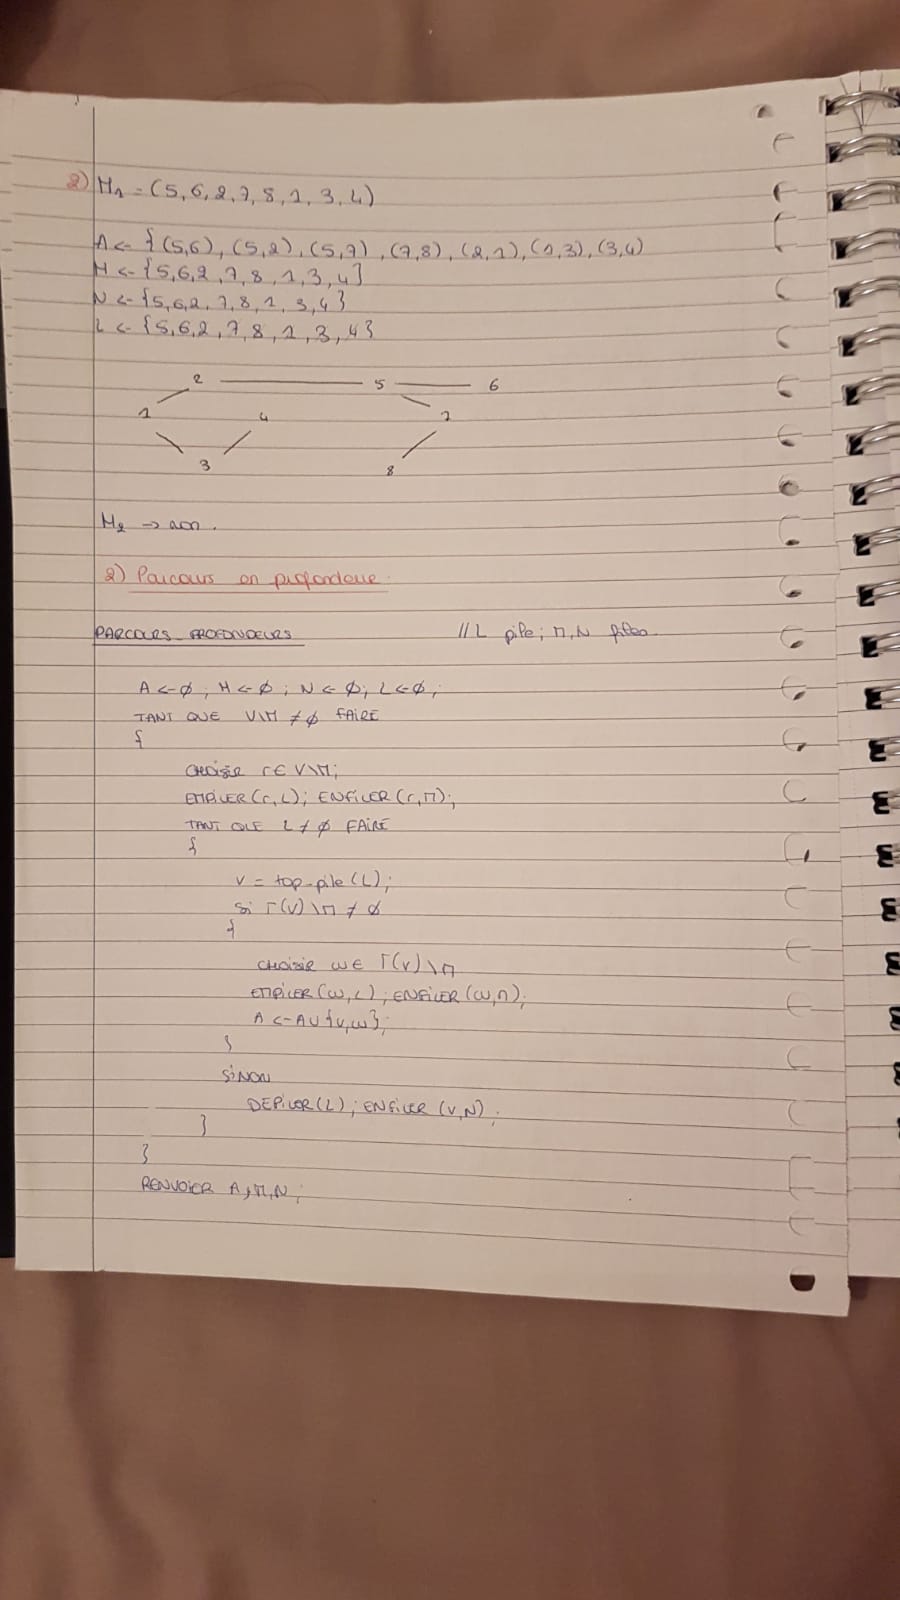 2) M1 = (5,6,2,7,8,1,3,4)
A <- {(5,6), (5,2), (5,7), (7,8), (2,1), (1,3), (3,4)
M <- {5,6,2,7,8,1,3,4}
N <- {5,6,2,7,8,1,3,4}
L <- {5,6,2,7,8,1,3,4}
2 5 6
1 4 7
3 8
M2 -> non.
2) Parcours en profondeur.
PARCOURS_PROFONDEURS // L pile; M,N files.
A <- ∅; M <- ∅; N <- ∅; L <- ∅;
TANT QUE V\M ≠ ∅ FAIRE
{
CHOISIR r ∈ V\M;
EMPILER(r,L); ENFILER(r,M);
TANT QUE L ≠ ∅ FAIRE
{
v = top-pile(L);
Si Γ(v)\M ≠ ∅
{
CHOISIR w ∈ Γ(v)\M
EMPILER(w,L); ENFILER(w,M);
A <- A∪{v,w};
}
SINON
DEPILER(L); ENFILER(v,N);
}
}
RENVOIER A,M,N;